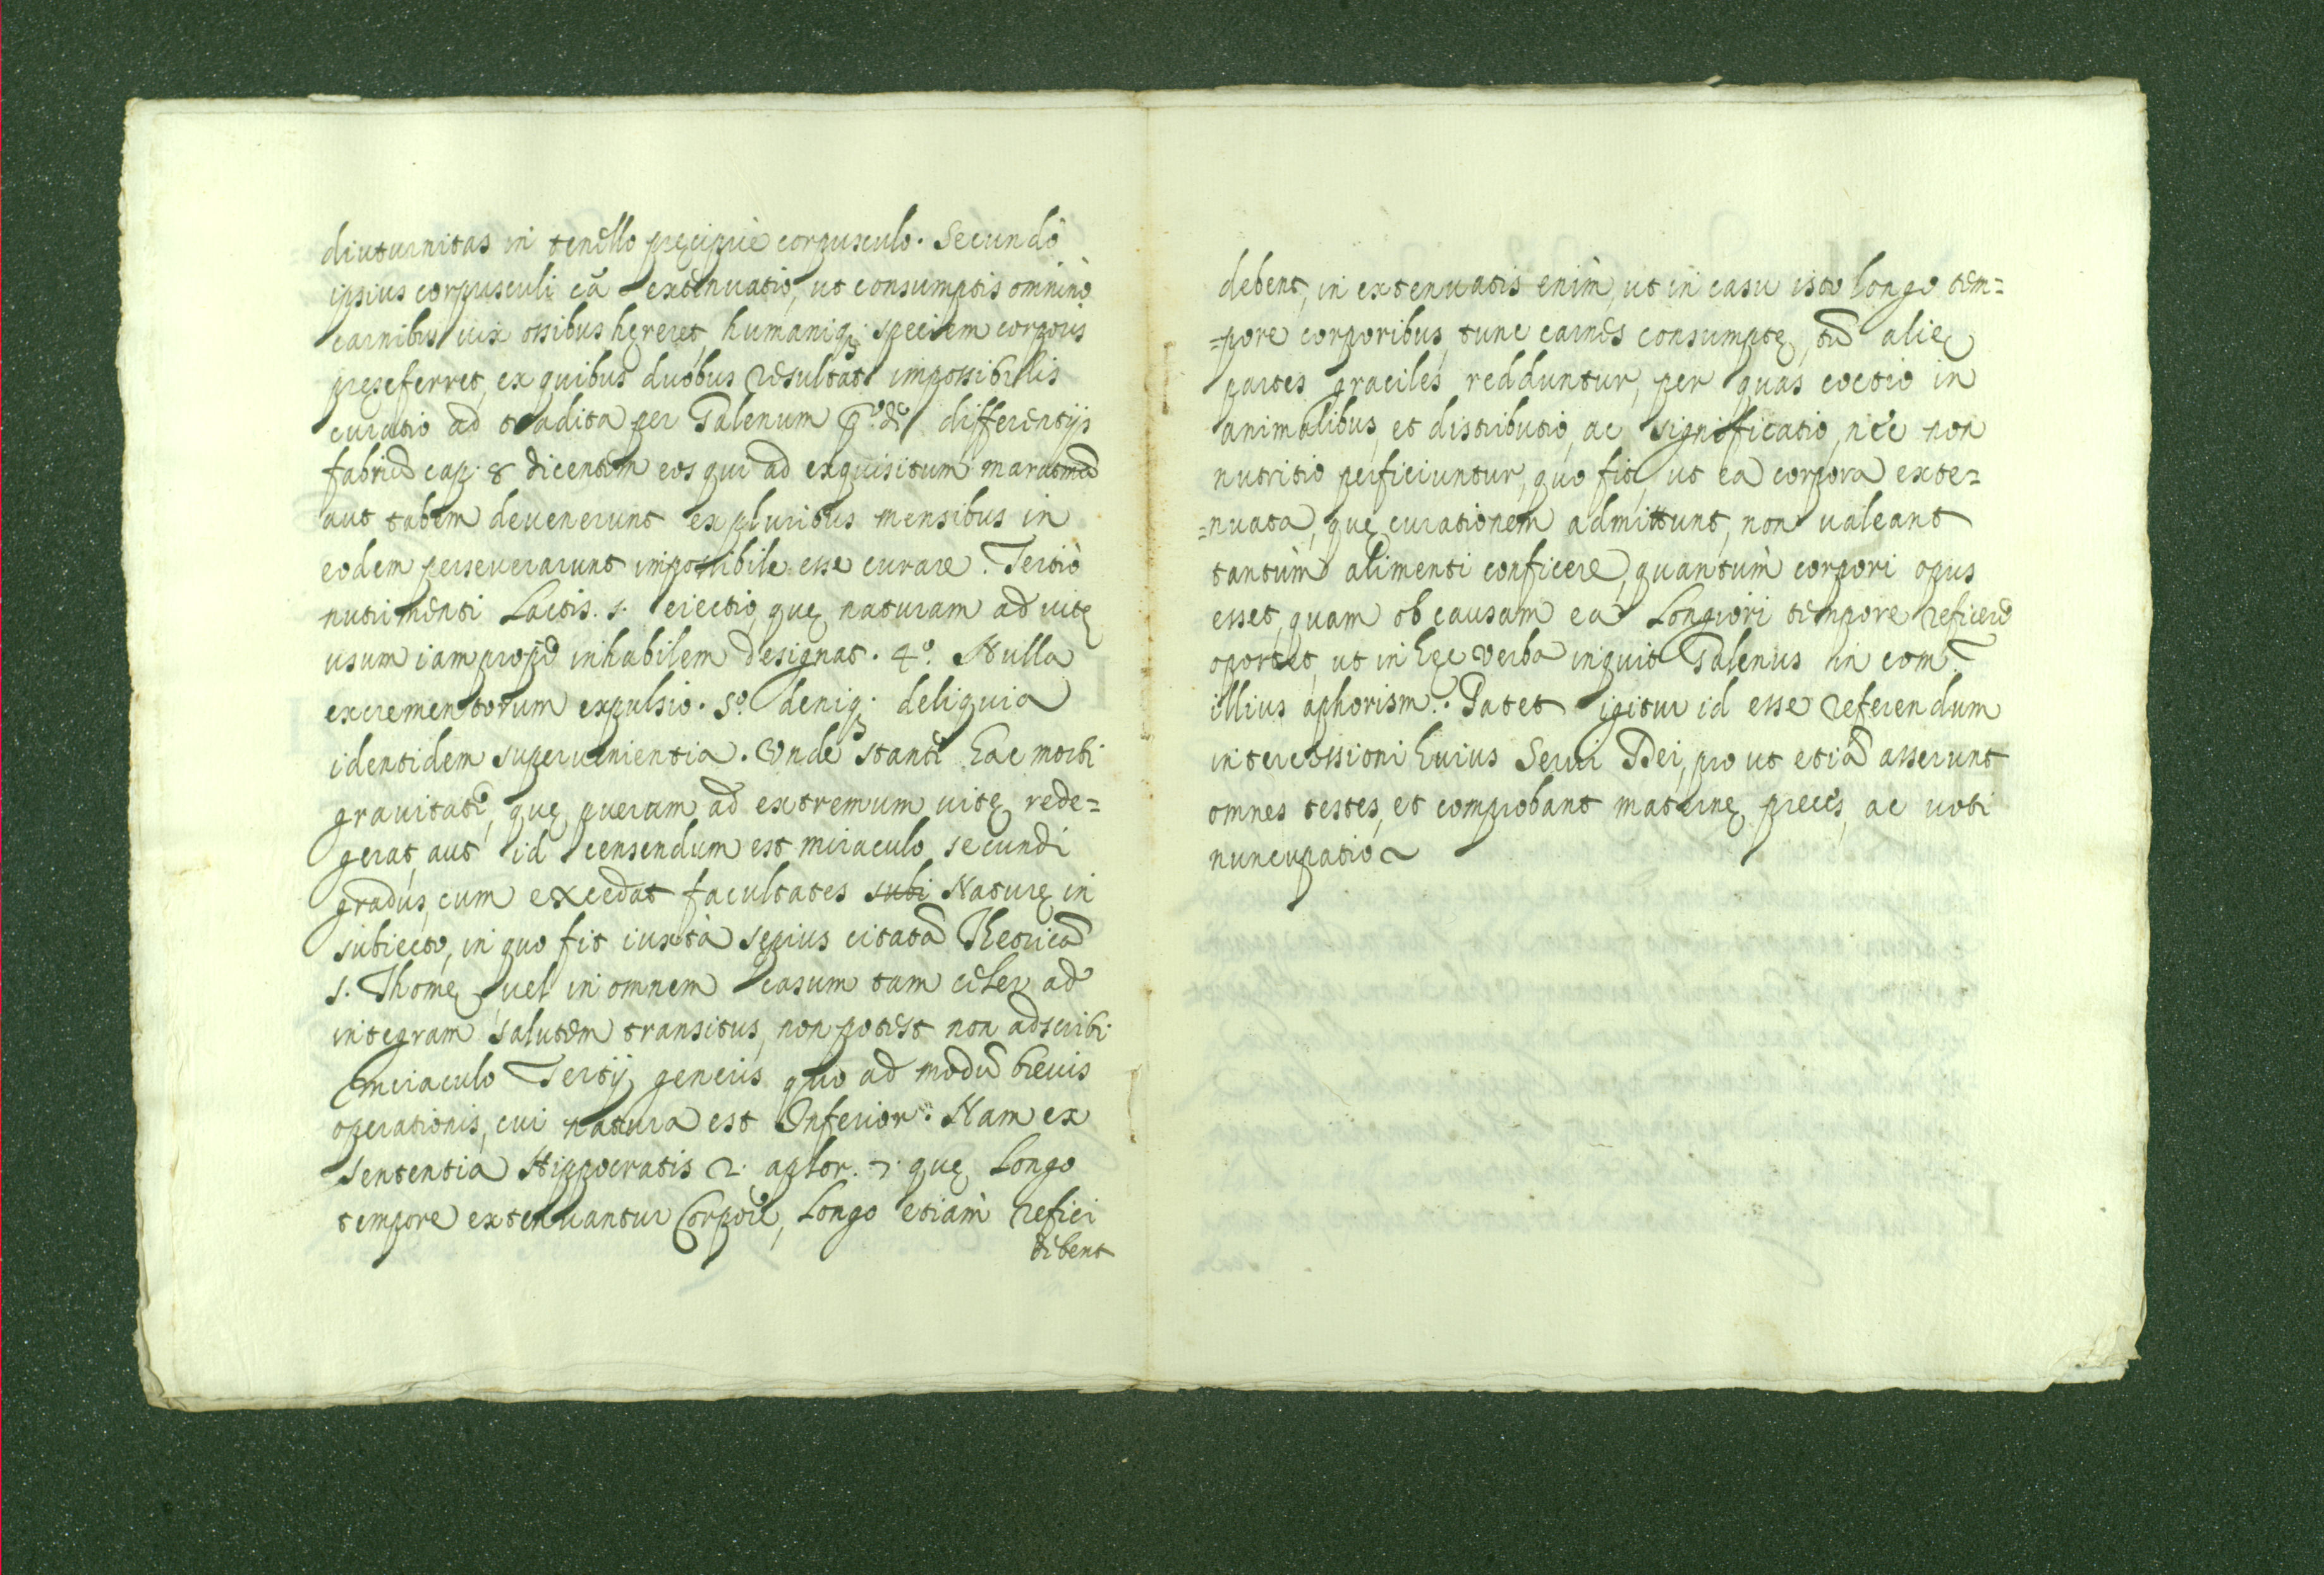 diuturnitas in tenello pręcipuè corpusculo. Secundò
ipsius corpusculi eã extenuatio, ut consumptis omninò
carnibus uix ossibus hęreret, humaniq; speciem corporis
pręseferret, ex quibus duobus resultat impossibilis
curatio ad tradita per Galenum p.º de differentijs
febriũ cap. 8 dicentem eos qui ad exquisitum marasmũ
aut tabem deuenerunt ex pluribus mensibus in
eodem perseuerarunt impossibile esse curare. Tertiò
nutrimenti Lactis .s. eiectio, quę naturam ad uitę
usum iam propè inhabilem designat. 4.º Nulla
excrementorum expulsio. 5.º deniq; deliquia
identidem superuenientia. Vnde stante hac morbi
grauitate, quę puerum ad extremum uitę rede=
gerat, aut id censendum est miraculo secundi
gradus, cum excedat facultates subi Naturę in
subiecto, in quo fit iuxtà sepius citatã Thetricã
S. Thomę, uel in omnem casum tam celer ad
integram salutem transitus, non potest non adscribi
miraculo Tertij generis quo ad modũ breuis
operationis, cui natura est Inferior. Nam ex
sententia Hippocratis 2. aphor. 7. quę Longo
tempore extenuantur Corpore, Longo etiam refici
debent
debent, in extenuatis enim, ut in casu isto longo tem=
=pore corporibus, tunc carnes consumptę, tũ alię
partes graciles redduntur, per quas coctio in
animalibus, et distributio, ac significatio, nec non
nutritio perficiuntur, quo fit, ut ea corpora exte=
=nuata, quę curationem admittunt, non ualeant
tantùm alimenti conficere, quantùm corpori opus
esset, quam ob causam ea Longiori tempore reficere
oportet, ut in hęc verba inquit Galenus in com.
illius aphorism. Patet igitur id esse referendum
intercessioni huius Serui Dei, pro ut etiã asserunt
omnes testes, et comprobant maternę preces, ac uoti
nuncupatio